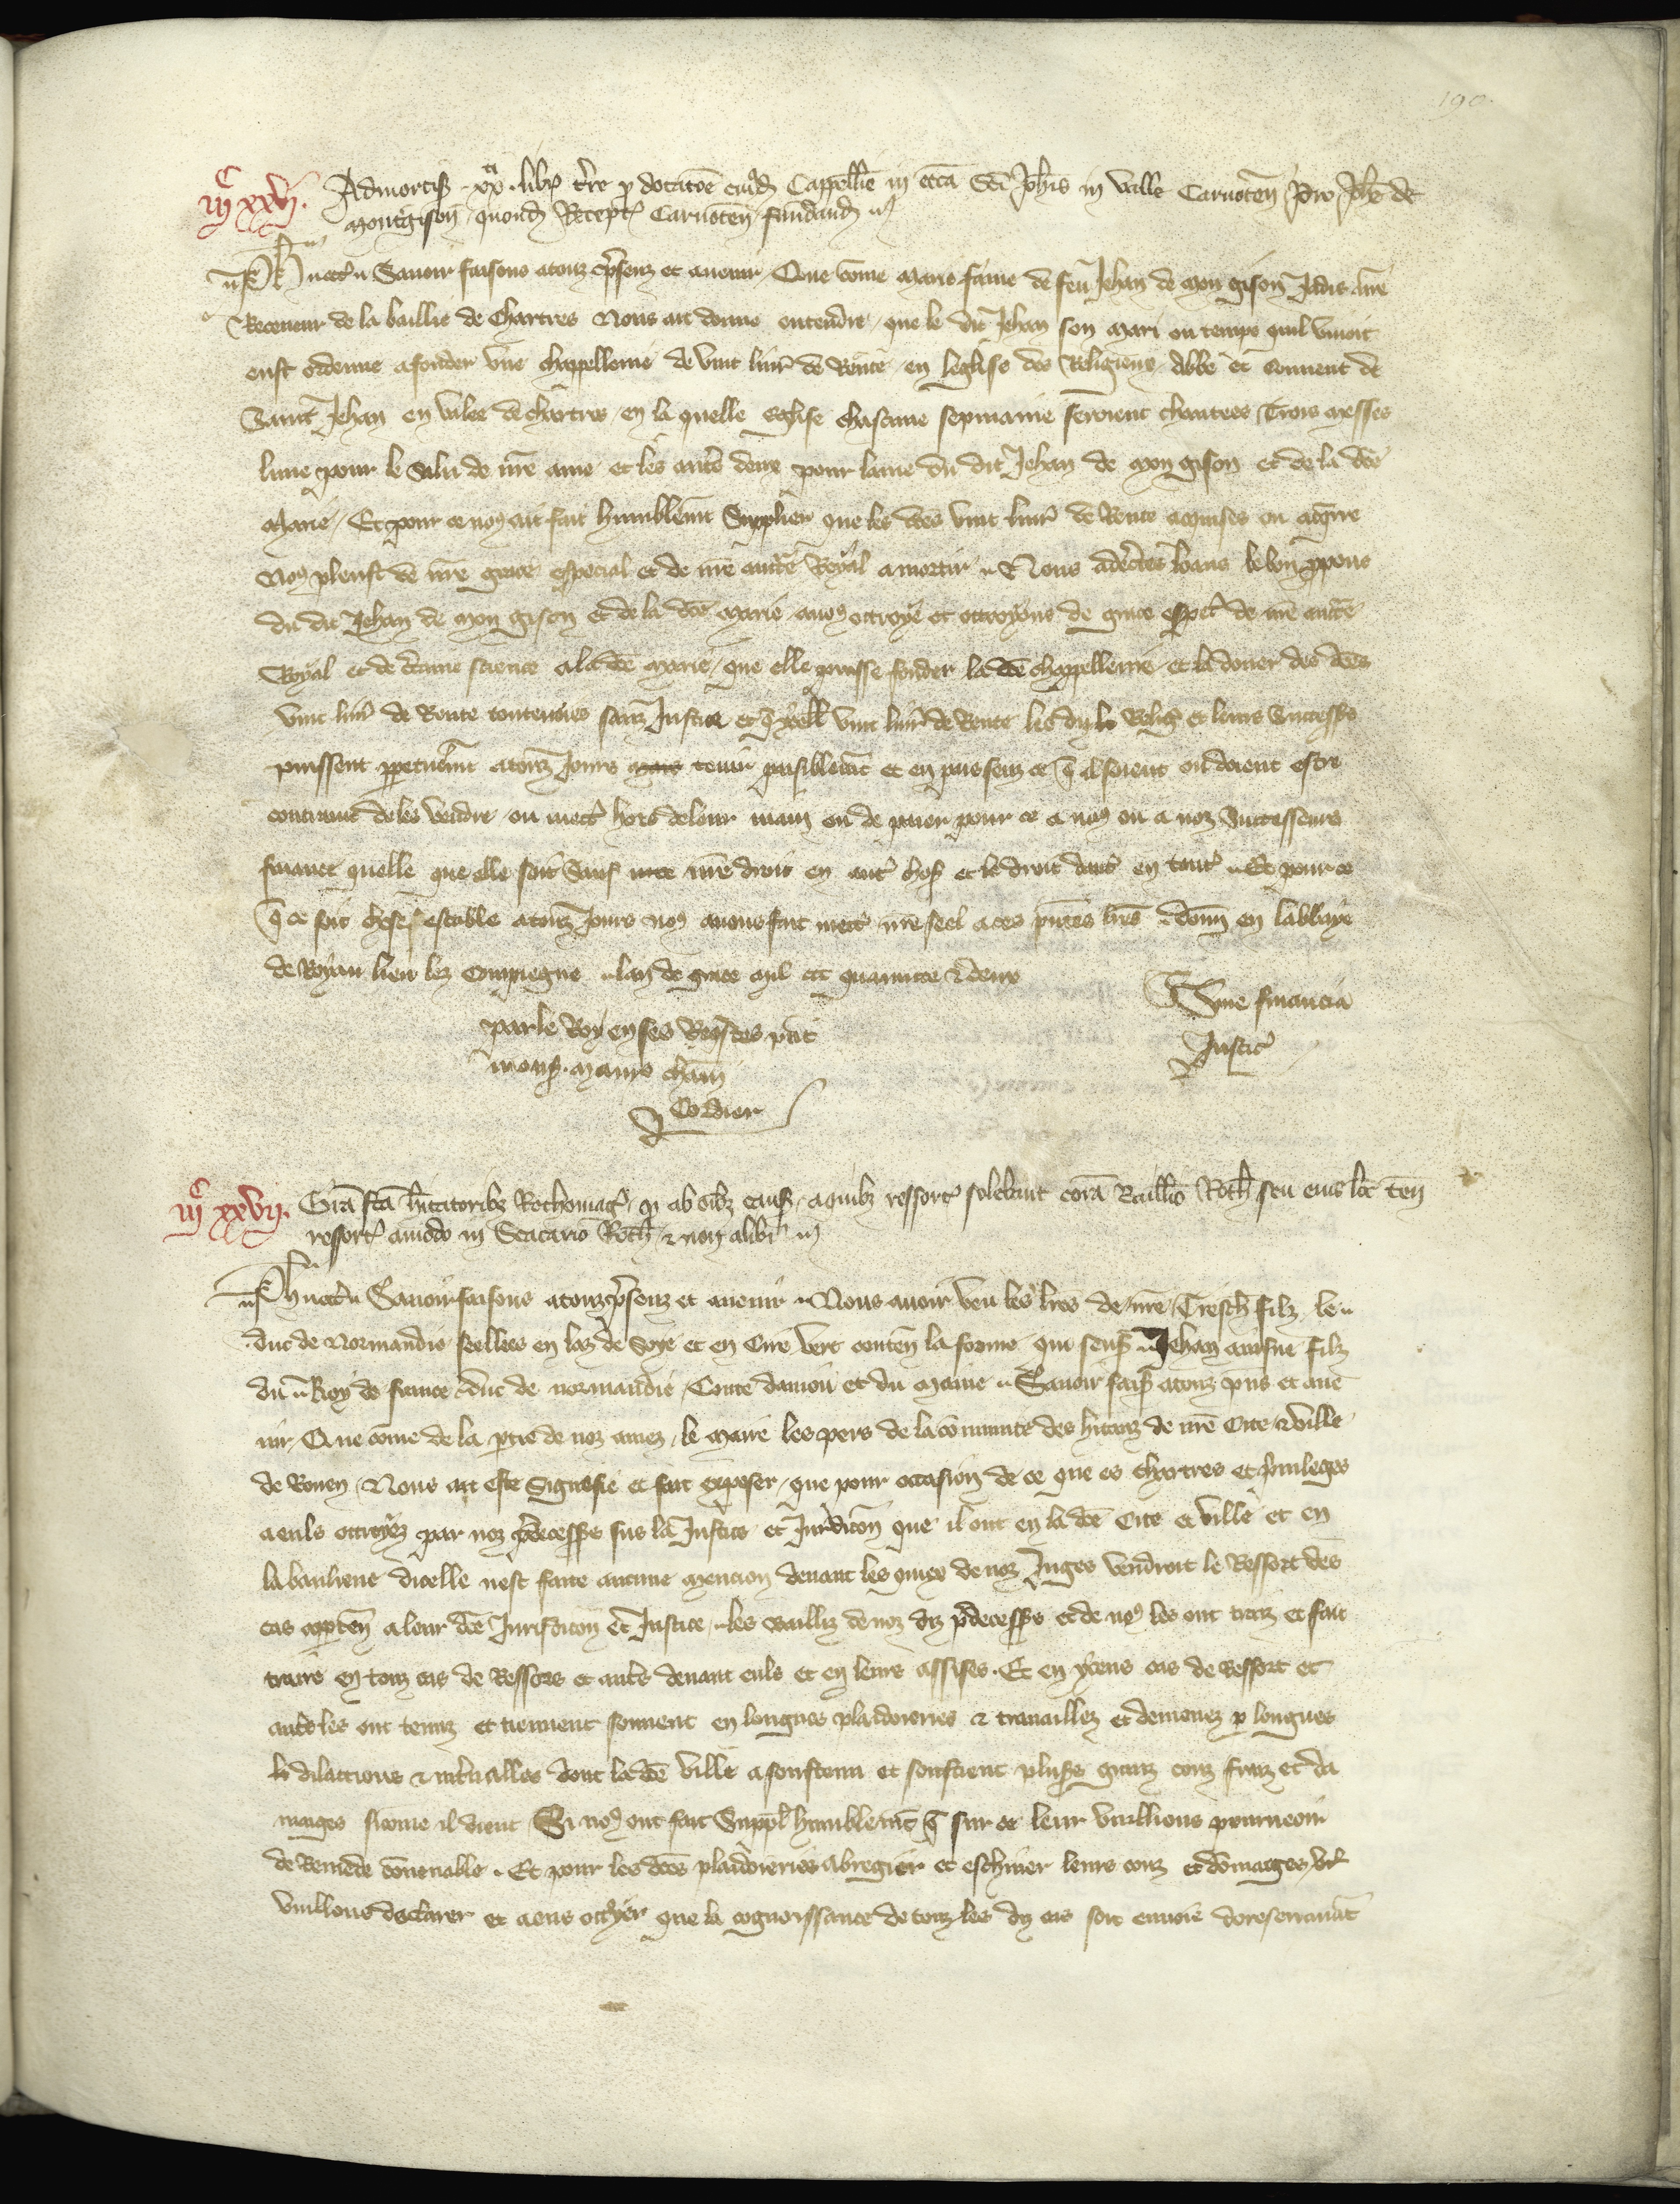 190
iijc xxvj. Admortiꝭ .xxti. libꝝ t're ꝑ dotac̃oe cuiꝰdã Cappell̃ie in ecc̃a Sc̃i Joh̃is in valle Carnoteñ Pro Joh̃e de
montgison̄ quond̃ Recept̉ Carnoteñ fundand̃
Ph̃ etc̉ Sauoir faisons a touz p̃senz et auenir Que cõme Marie fãme de feu Jehan de Mongison Jadis nr̃e
Receueur de la baillie de Chartres Nous ait donne entendre que le dit Jehan son mari ou temps quil viuoit
eust ordenne a fonder vne chappellenie de vint liur̉ de Rente en leglise des Religieux Abbe et Conuent de
Saint Jehan en valee de chartres en la quelle Eglise chascune sepmaine seroient chantees Trois messes
lune pour le Salu de nr̃e ame et les autr̃ deux pour lame du dit Jehan de Mongison et de la dc̃e
Marie Et pour ce noꝰ ait fait humblemt̃ Supplier que les dc̃es vint liur̉ de Rente acquises ou acq̃rre
Noꝰ pleust de nr̃e grace especial et de nr̃e auctc̃te Royal amortir Nous adec̃tes loans le bon ꝓpous
du dit Jehan de Mongison et de la dc̃e Marie auoꝰ ottroye et ottroyons de grace esp̃ct̉ de nr̃e auctc̃te
Royal et de c̃taine science a la dc̃e Marie que elle puisse fonder la dc̃e chappellenie et la douer des dc̃es
vint liur̉ de Rente contenues sanz Justice et q̃ ycell̃ vint liur̉ de Rente les diz Relig̉ et leurs Successrs
puissent ꝑpetuelmt̃ a touz Jours tenir paisiblemt̃ et en paesenz ce q̃ il soient ou doient estre
contraint de les vendre ou mect̉ hors de leur main ou de paier pour ce a noꝰ ou a noz Successeurs
finance quelle que elle soit Sauf nr̃e droit en aut̉ choꝭ et le droit daut̉ en tout̉ Et pour ce
q̃ ce soit chose estable a touz Jours noꝰ auons fait mect̉ nr̃e seel a ces p̃ntes lr̃es donñ en labbaye
de Royau lieu lez Compiegne lan de grace mil ccc quarante & deux
Sine financia
par le Roy en ses Req̃stes p̃nt
Justic̉
monꝭ. Maire cham̃
Cordier
iijc xxvij. Gr̃a fc̃a h̃itatoribꝫ Rothomag̉ q̉ ab om̃ibꝫ cauꝭ a quibꝫ ressort̉ solebant corã Bailliuõ Roth̃ seu eius loc̃ teñ
ressort̉ amodo in Scacario Roth̃ & non alibi
Ph̃ etc̉ Sauoir faisons a touz p̃senz et auenir Nous auoir veu les lr̃es de nr̃e Tresch̃ filz le
duc de Normandie seellees en laz de Soye et en Cire vert conteñ la forme qui senꝭ Jehan ainsne filz
du Roy de france duc de normandie Conte daniou et du Maine Sauoir faiꝭ a touz p̃ns et aue
nir Que cõme de la p̃tie de noz amez le Maire les pers de la cõmunite des h̃itanz de nr̃e Cite & ville
de Rouen Nous ait este Signefie et fait exposer que pour occasion de ce que es chartres et p̃uileges
a euls ottroyez par noz p̃decessrs sus la Justice et Jurdicõn que il ont en la dc̃e Cite et ville et en
la banlieue dicelle nest faite aucune mencion deuant les quiex de noz Juges vendroit le Ressort des
cas apꝑteñ a leur dc̃e Jurisdicõn et Justice les bailliz de noz diz p̃decessrs et de noꝰ les ont traiz et fait
traire en touz cas de Ressors et autr̃s deuant euls et en leurs assises. Et en yceus cas de Ressort et
autr̃s les ont tenuz et tiennent souuent en longues plaidoieries & trauaillez et demenez ꝑ longues
dilacions & int̉ualles dont la dc̃e ville a soustenu et soustient plusrs granz couz fraiz et da
mages sicome il dient Si noꝰ ont fait Suppl̃ humblemt̃ q̃ sur ce leur vueillions pourueoir
de Remede cõuenable. Et pour les dc̃es plaidoieries abregier et eschiuer leurs couz et dõmages
vuillons declarer et a eus ottr̃yer que la cognoissance de touz les diz cas soit enuoie doresenauãt